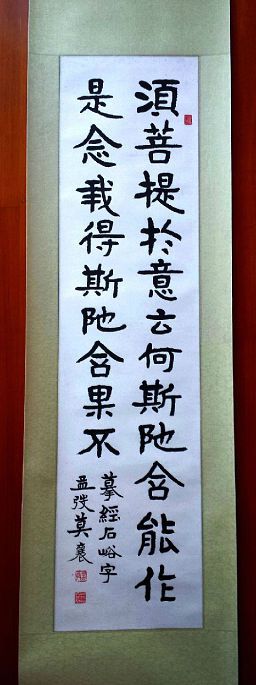 須菩提於意云何斯陁含能作
是念我得斯陁含果不
摹經石峪字